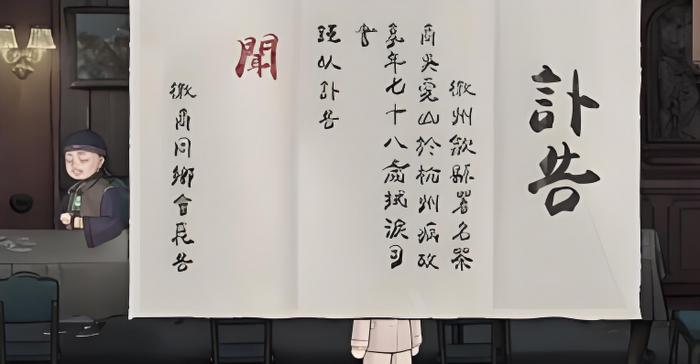 訃告
徽州歙縣著名茶
商吳雯山於杭州病故
享年七十八歲拭淚
以訃告
聞
徽商同鄉會告